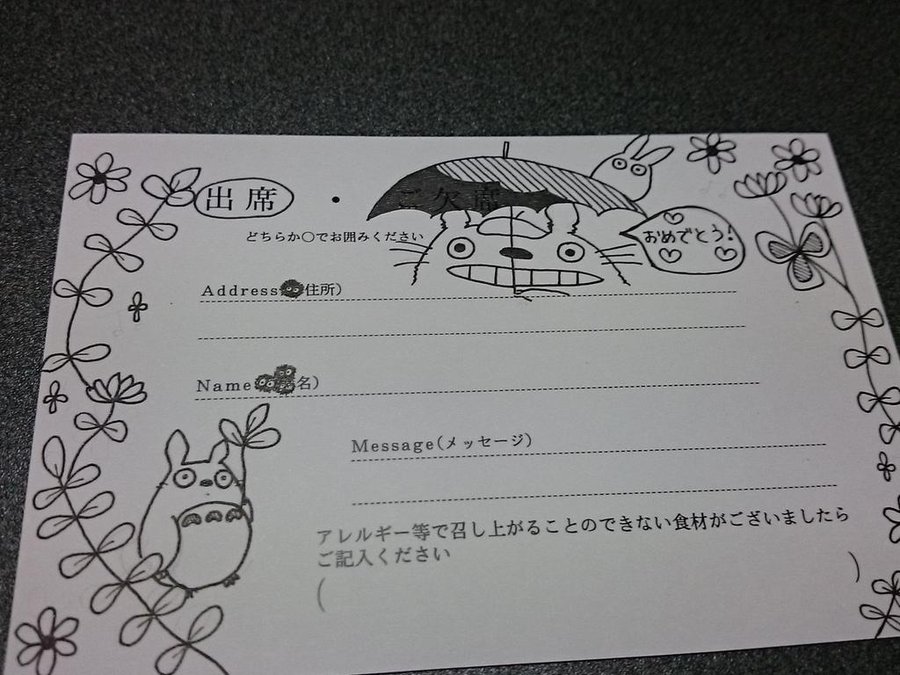 出席 ・ ご欠席
どちらか〇でお囲みください
おめでとう!
Address 住所)
Name 名)
Message(メッセージ)
アレルギー等で召し上がることのできない食材がございましたら
ご記入ください
( )